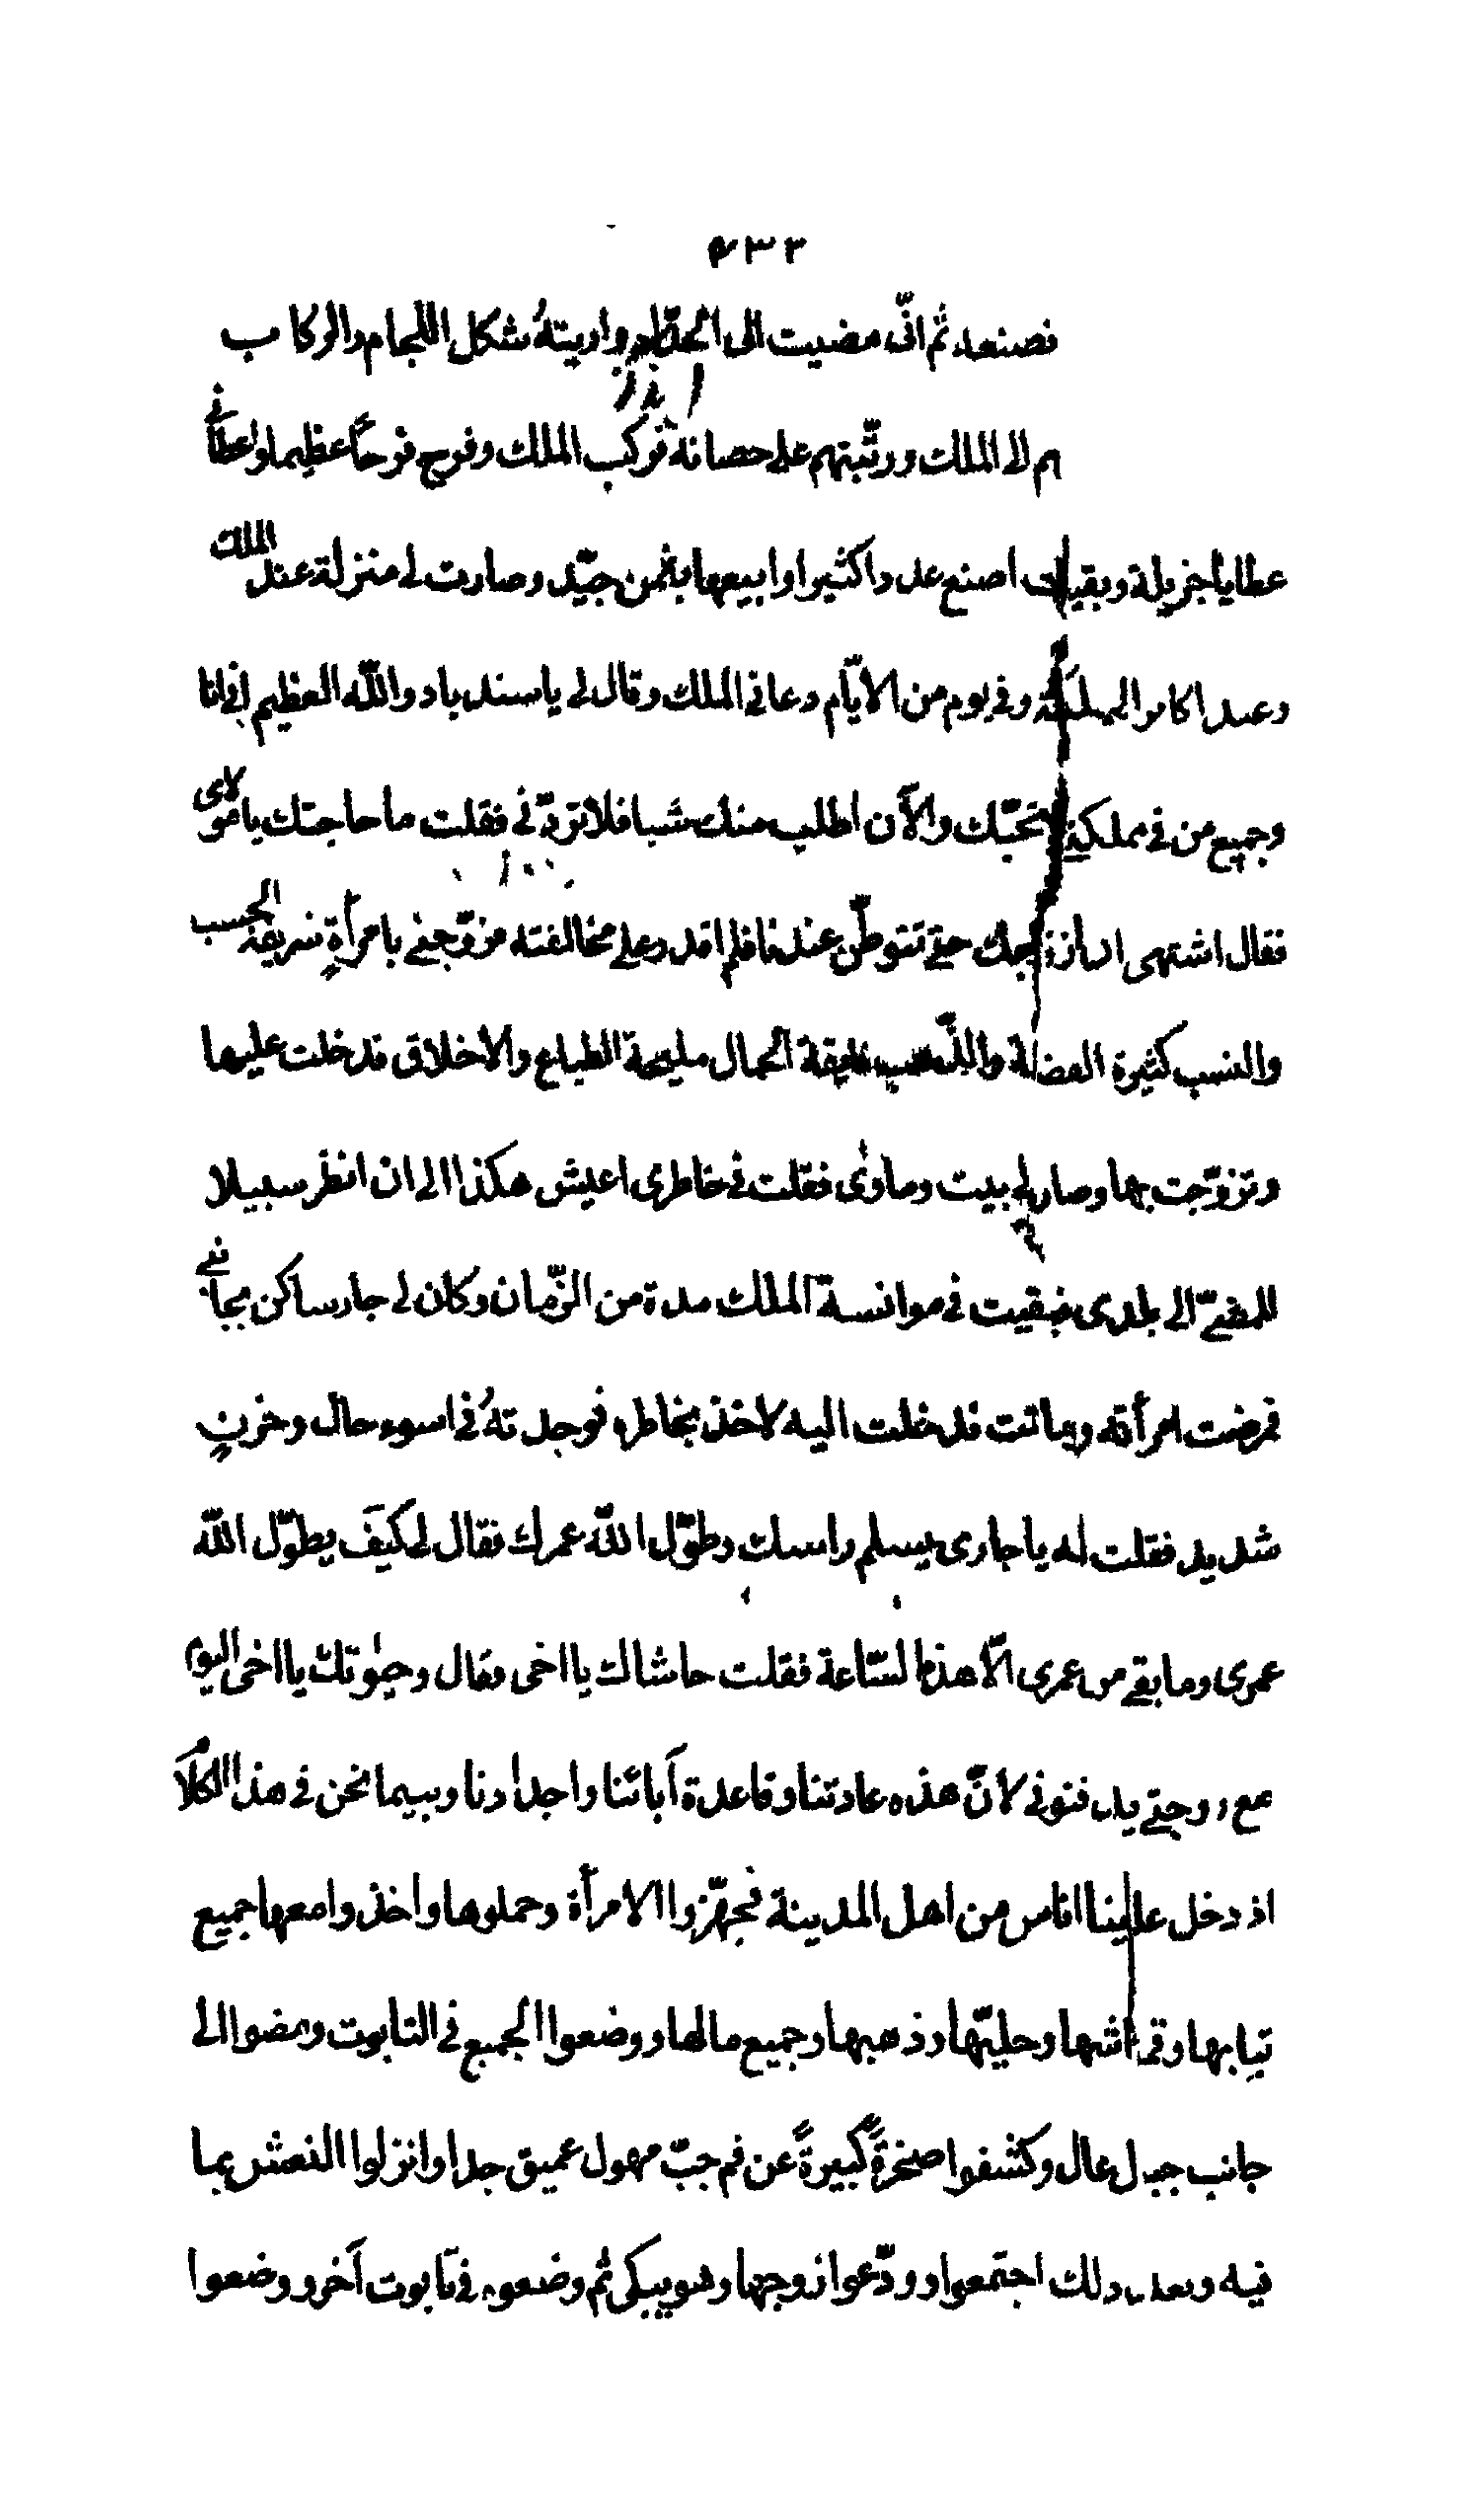 ٤٣٢
فصنعه ثم انّى مضيت الى واريتهُ شكل اللجام والركاب
لا الملك ورتّبتهم على حصانهُ فركب الملك وفرح فرحًا عظيما واعطانى
عطايا جزيلة وبقيت اصنع عددا كثيرا وابيعها بثمن جيّد وصارت لى منزلة عند الملك
وعند اكابر وفى يوم من الايّام دعانى الملك وقال لى يا سندباد والله العظيم انى انا
وجميع من فى مملكتى نحبّك والآن اطلب منك شيا فلا تردّنى فقلت ما حاجتك يا مولاى
فقال اشتهى ان ازوجك حتى تتوطّن عندنا فلم اقدر على مخالفته فزوّجنى بامرأةٍ شريفة الحسب
والنسب كثيرة الفضة والذّهب الجمال مليحة الطباع والاخلاق فدخلت عليها
وتزوّجت بها وصار لى بيت وماوٰى فقلت فى خاطرى اعيش هكذا الى ان انظر سبيلا
الى بلدى فبقيت فى موانسة الملك مدة من الزّمان وكان لى جار ساكن بجانبى
فمرضت امرأته وماتت فدخلت اليه لاخذ بخاطره فوجدتهُ فى اسوء حال وحزنٍ
شديد فقلت له يا جارى يسلم راسك وطوّل الله عمرك فقال لى كيفَ يطوّل الله
عمرى وما بقى من عمرى الّا هذه السّاعة فقلت حاشاك يا اخى فقال وحيٰوتك يا اخى اليوم
مع زوجتى يدفنونى لانّ هذه عادتنا وقاعدة آبائنا واجدادنا وبينما نحن فى هذا الكلام
اذ دخل علينا اناس من اهل المدينة فجهّزوا الامرأة وحملوها واخذوا معها جميع
ثيابها وقماشها وحليتها وذهبها وجميع مالها ووضعوا الجميع فى التابوت ومضوا الى
جانب جبل عال وكشفوا صخرةً كبيرةً عن فم جبّ مهول عميق جدا وانزلوا النعش بما
فيه وبعد ذلك اجتمعوا وودّعوا زوجها وهو يبكى ثم وضعوه فى تابوت آخر ووضعوا